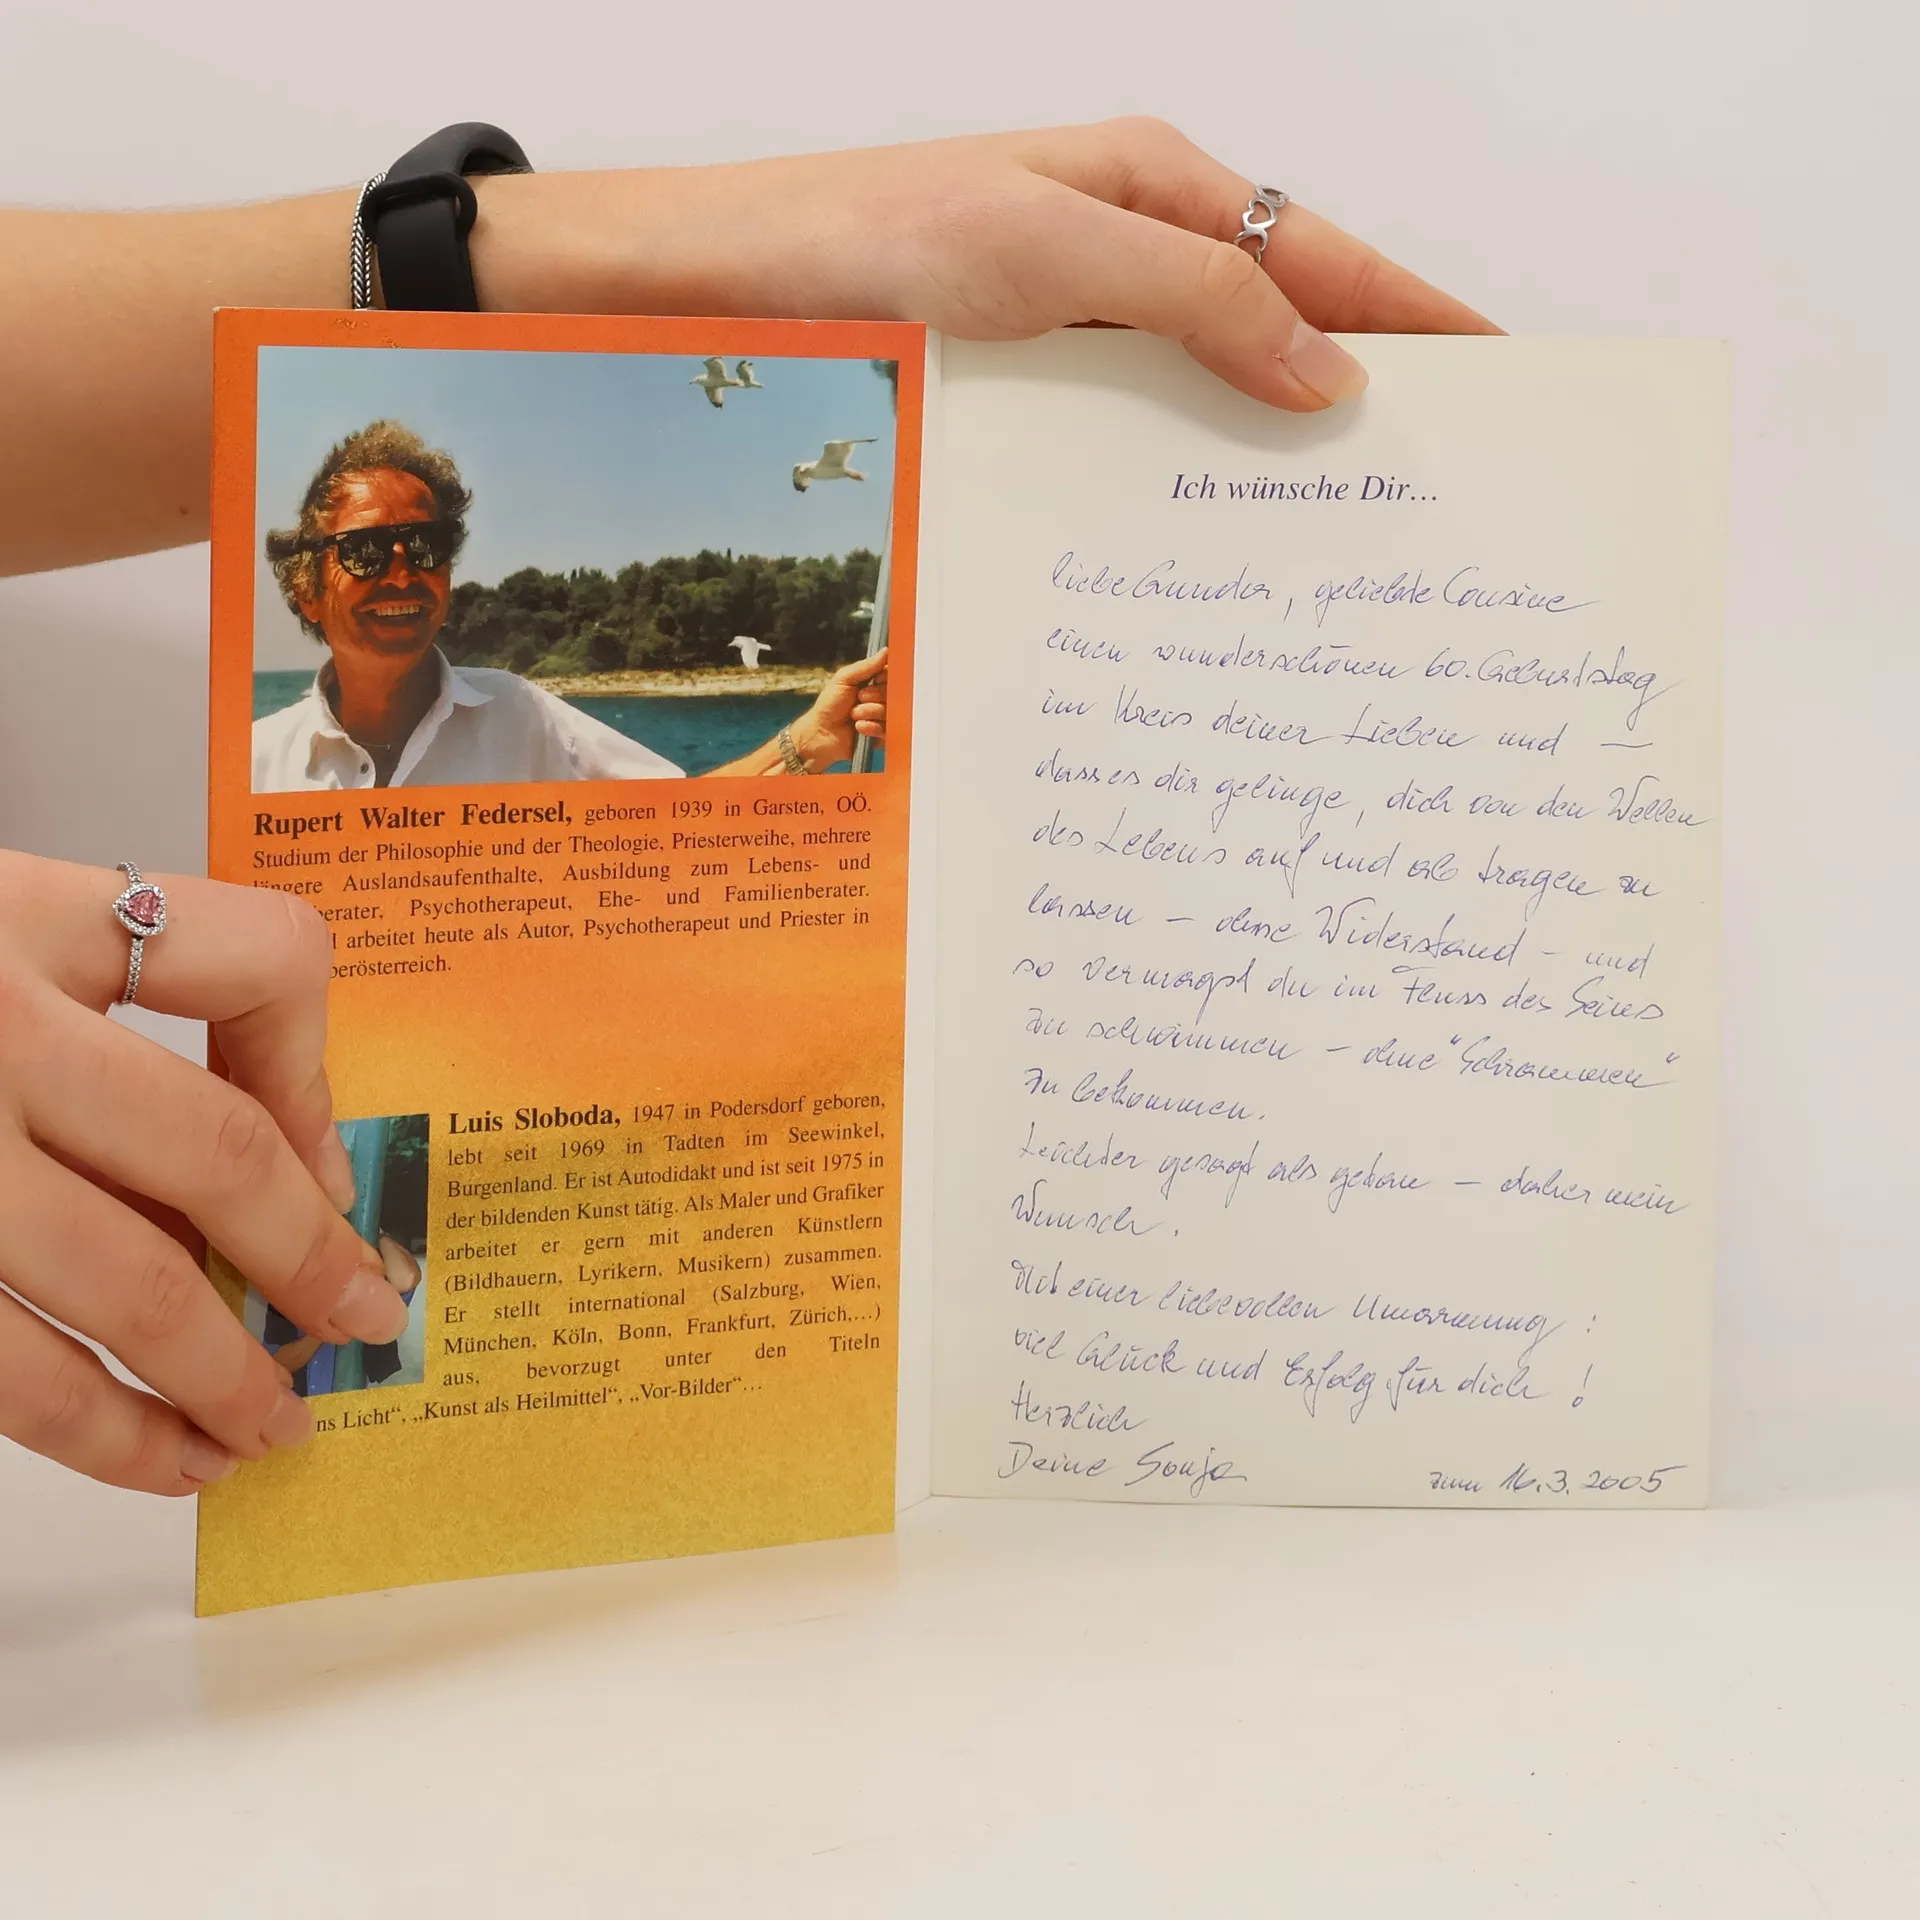 Rupert Walter Federsel, geboren 1939 in Garsten, OÖ.
Studium der Philosophie und der Theologie, Priesterweihe, mehrere
längere Auslandsaufenthalte, Ausbildung zum Lebens- und
berater, Psychotherapeut, Ehe- und Familienberater.
l arbeitet heute als Autor, Psychotherapeut und Priester in
berösterreich.
Luis Sloboda, 1947 in Podersdorf geboren,
lebt seit 1969 in Tadten im Seewinkel,
Burgenland. Er ist Autodidakt und ist seit 1975 in
der bildenden Kunst tätig. Als Maler und Grafiker
arbeitet er gern mit anderen Künstlern
(Bildhauern, Lyrikern, Musikern) zusammen.
Er stellt international (Salzburg, Wien,
München, Köln, Bonn, Frankfurt, Zürich,...)
aus, bevorzugt unter den Titeln
ns Licht“, „Kunst als Heilmittel“, „Vor-Bilder“...
Ich wünsche Dir...
liebe geliebte Cousine
einen wunderschönen 60. Geburtstag
im Kreis deiner Lieben und —
dass es dir gelinge, dich von den Wellen
des Lebens auf und ab tragen zu
lassen – ohne Widerstand – und
so vermagst du im Fluss des Seins
zu schwimmen – ohne "Schrammen"
zu bekommen.
Leichter gesagt als getan – daher mein
Wunsch.
Mit einer liebevollen Umarmung :
viel Glück und Erfolg für dich !
Herzlich
Deine Sonja
zum 16.3.2005